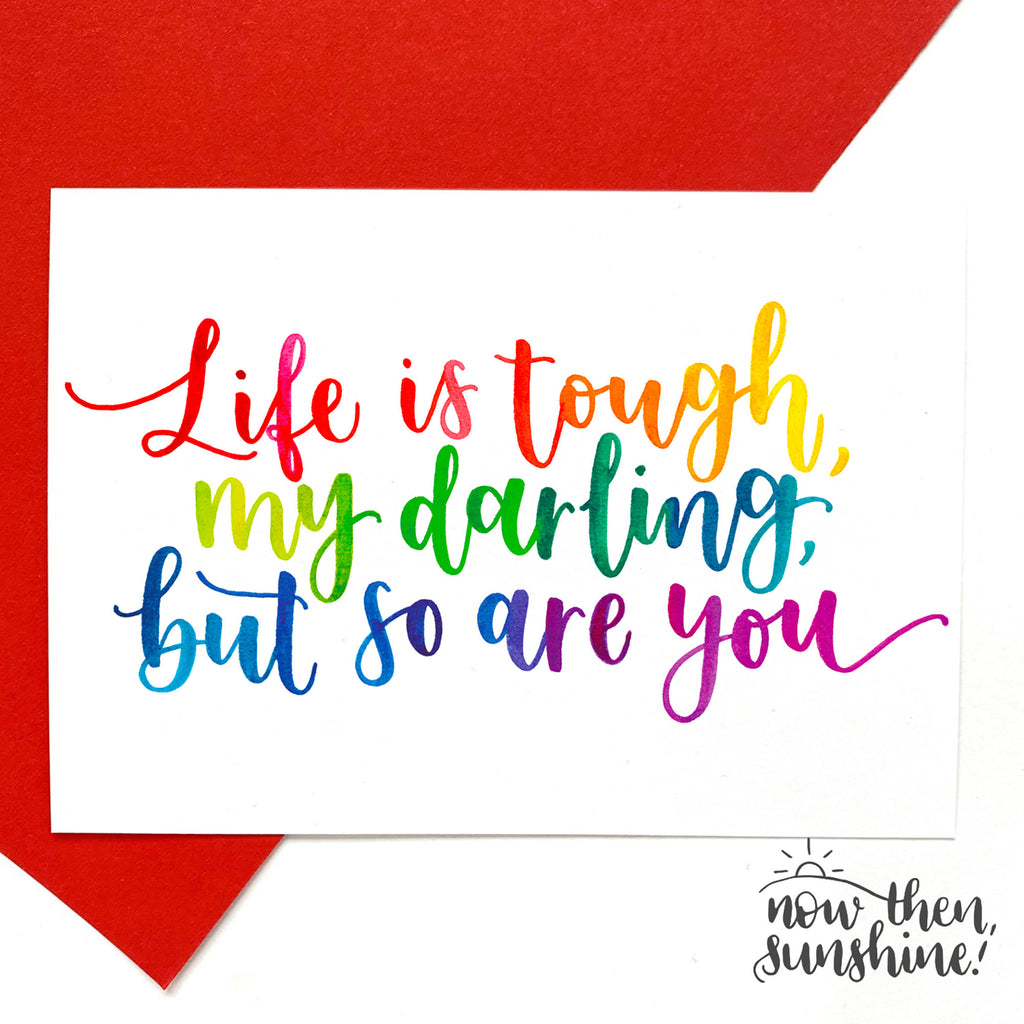 Life is tough,
my darling,
but so are you
now then,
sunshine!